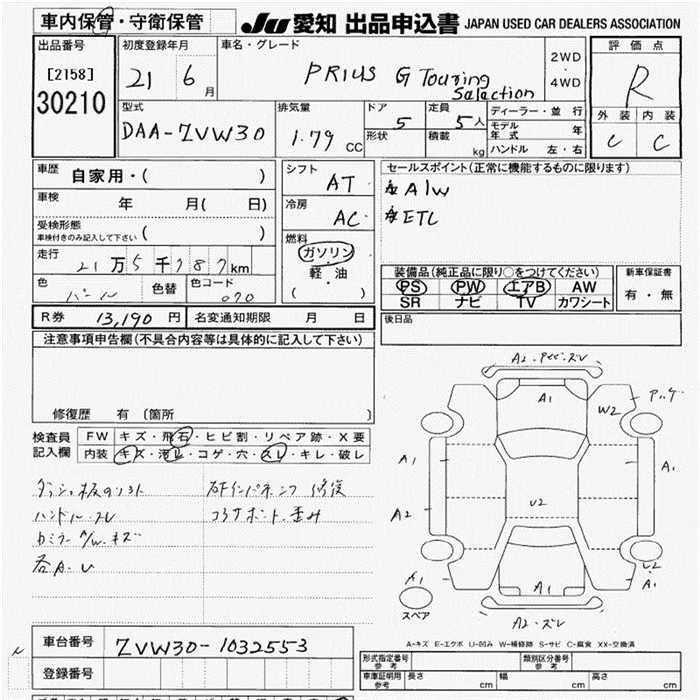 車内保管・守衛保管
JU 愛知 出品申込書 JAPAN USED CAR DEALERS ASSOCIATION
出品番号 初度登録年月 車名・グレード 2WD・4WD 評価点
[2158] 21 6月 PRIUS G Touring Selection R
30210 外装 内装
型式 排気量 ドア 定員 ディーラー・並行
DAA-ZVW30 1.79 CC 5 5人 モデル年式 年 C C
形状 積載 kg ハンドル 左・右
車歴 自家用・( ) シフト AT セールスポイント(正常に機能するものに限ります)
車検 年 月( 日) 冷房 AC A/W
受検形態 ( ) ETC
車検付きのみ記入して下さい
走行 21万5千787km 燃料 ガソリン・軽・油 ( )
装備品(純正品に限り○をつけてください) 新車保証書
色 パール 色替 色コード 070 PS PW エアB AW 有・無
SR ナビ TV カワシート
R券 13,190円 名変通知期限 月 日 後日品
注意事項申告欄(不具合内容等は具体的に記入して下さい)
修復歴 有 〔箇所 〕
検査員記入欄 FW キズ・飛石・ヒビ割・リペア跡・X要
内装 キズ・汚レ・コゲ・穴・スレ・キレ・破レ
ハンドル スレ
コアサポート 歪み
各A.U
A1 W2
A1 A1
A2 U2
U2
A1 A1 A1
スペア A2・ズレ
A-キズ E-エクボ U-凹み W-補修跡 S-サビ C-腐食 XX-交換済
車台番号 ZVW30-1032553
登録番号
形式指定番号 参考 類別区分番号 参考
車庫証明用 参考 長さ cm 幅 cm 高さ cm